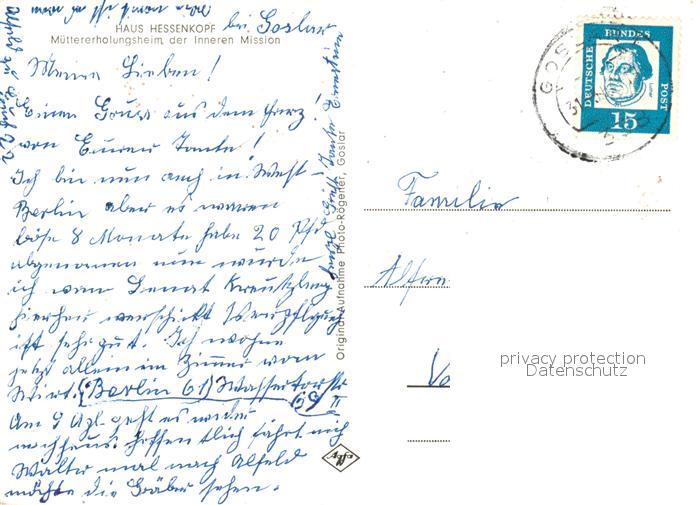 HAUS HESSENKOPF bei Goslar
Müttererholungsheim der Inneren Mission
Meine Lieben!
Einen Gruss aus dem Harz!
von Eurer Tante!
Ich bin nun auch in West-
Berlin aber es waren
böse 8 Monate habe 20 Pfd
abgenommen nun wurde
ich vom Senat Kreutzberg
hierher verschickt Verpflegung
ist sehr gut. Ich wohne
jetzt allein im Zimmer vom
Wirt. (Berlin 61) Wassertorstr
69 II
Am 9 Apl. geht es wieder
nachhaus hoffentlich fährt mich
Walter mal nach Alfeld
möchte die Gräber sehen.
Tante
Original-Aufnahme Photo-Rögener, Goslar
DEUTSCHE BUNDES POST
Luther
15
GOS
31
Familie
Alfre
Vo
privacy protection
Datenschutz